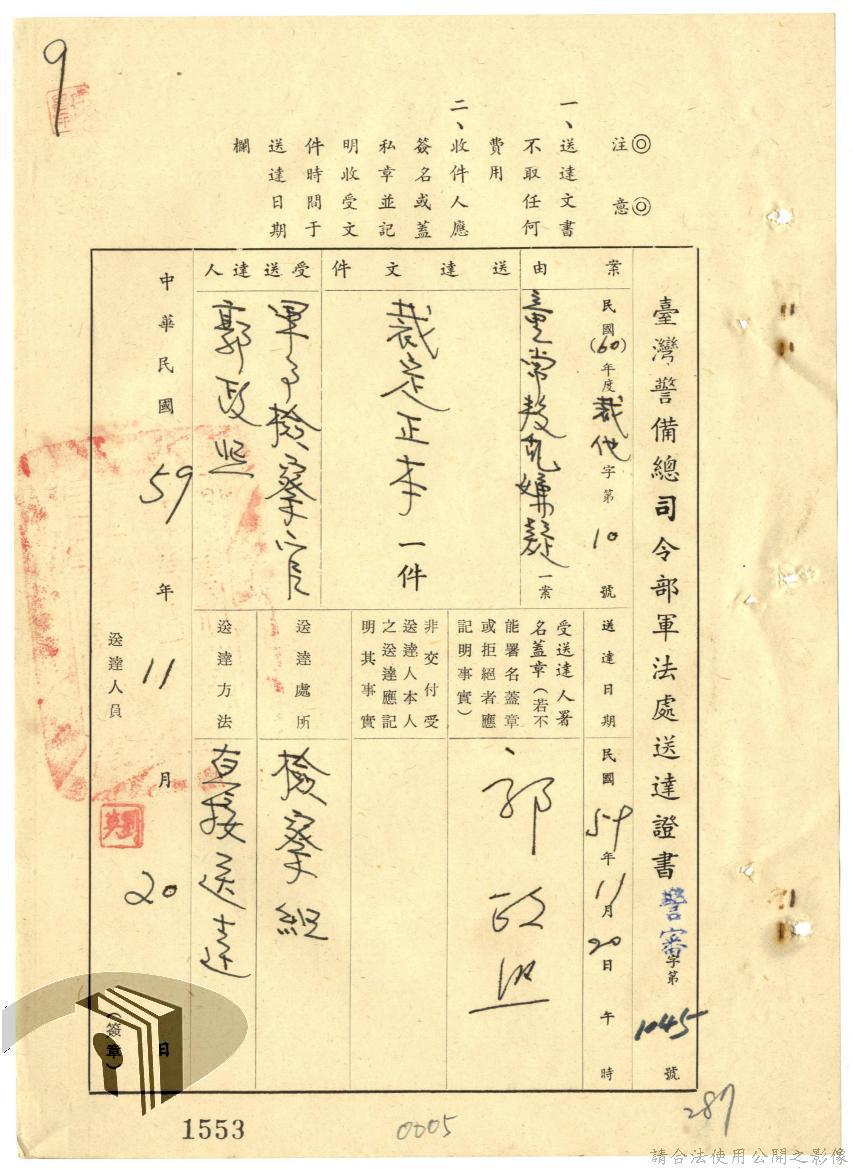 9
注意
一、送達文書
不取任何
費用
二、收件人應
簽名或蓋
私章並記
明收受文
件時間于
送達日期
欄
臺灣警備總司令部軍法處送達證書警審字第1045號
案由
民國(60)年度裁他字第10號
童常叛亂嫌疑一案
送達文件
裁定正本一件
受送達人
軍事檢察官
郭政熙
送達日期
民國59年11月20日午時
受送達人署
名蓋章(若不
能署名蓋章
或拒絕者應
記明事實)
郭政熙
非交付受
送達人本人
之送達應記
明其事實
送達處所
檢察組
送達方法
直接送達
中華民國59年11月20日
送達人員
(簽章)
1553
0005
287
請合法使用公開之影像